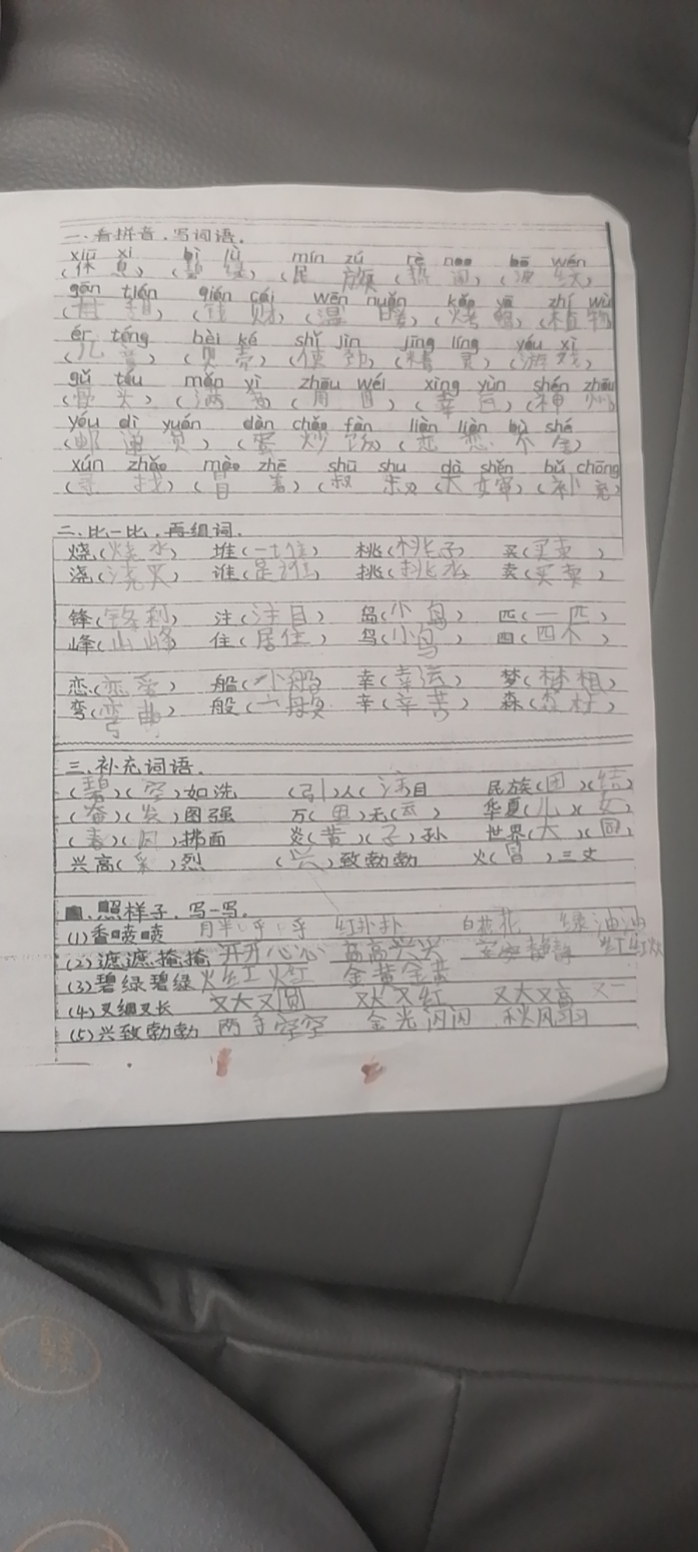 一、看拼音,写词语。
xiū xi bì lǜ mín zú rè nao bō wén
(休息)(碧绿)(民族)(热闹)(波纹)
gān tián qián cái wēn nuǎn kǎo yā zhí wù
(甘甜)(钱财)(温暖)(烤鸭)(植物)
ér tóng bèi ké shǐ jìn jīng líng yóu xì
(儿童)(贝壳)(使劲)(精灵)(游戏)
gǔ tou mǎn yì zhōu wéi xìng yùn shén zhōu
(骨头)(满意)(周围)(幸运)(神州)
yóu dì yuán dàn chǎo fàn liàn liàn bù shě
(邮递员)(蛋炒饭)(恋恋不舍)
xún zhǎo mào zhe shū shu dà shěn bǔ chōng
(寻找)(冒着)(叔叔)(大婶)(补充)
二、比一比,再组词。
烧(烧水) 堆(一堆) 桃(桃子) 买(买卖)
浇(浇灭) 谁(是谁) 挑(挑水) 卖(买卖)
锋(锋利) 注(注目) 岛(小岛) 匹(一匹)
峰(山峰) 住(居住) 鸟(小鸟) 四(四个)
恋(恋爱) 船(小船) 幸(幸运) 梦(梦想)
弯(弯曲) 般(一般) 辛(辛苦) 森(森林)
三、补充词语。
(碧)(空)如洗 (引)人(注)目 民族(团)(结)
(奋)(发)图强 万(里)无(云) 华夏(儿)(女)
(春)(风)拂面 炎(黄)(子)孙 世界(大)(同)
兴高(采)烈 (兴)致勃勃 火(冒)三丈
四、照样子,写一写。
(1)香喷喷 胖乎乎 红扑扑 绿油油
(2)遮遮掩掩 开开心心 高高兴兴 安安静静
(3)碧绿碧绿 火红火红 金黄金黄
(4)又细又长 又大又圆 又大又红 又大又高 又
(5)兴致勃勃 两手空空 金光闪闪 秋风